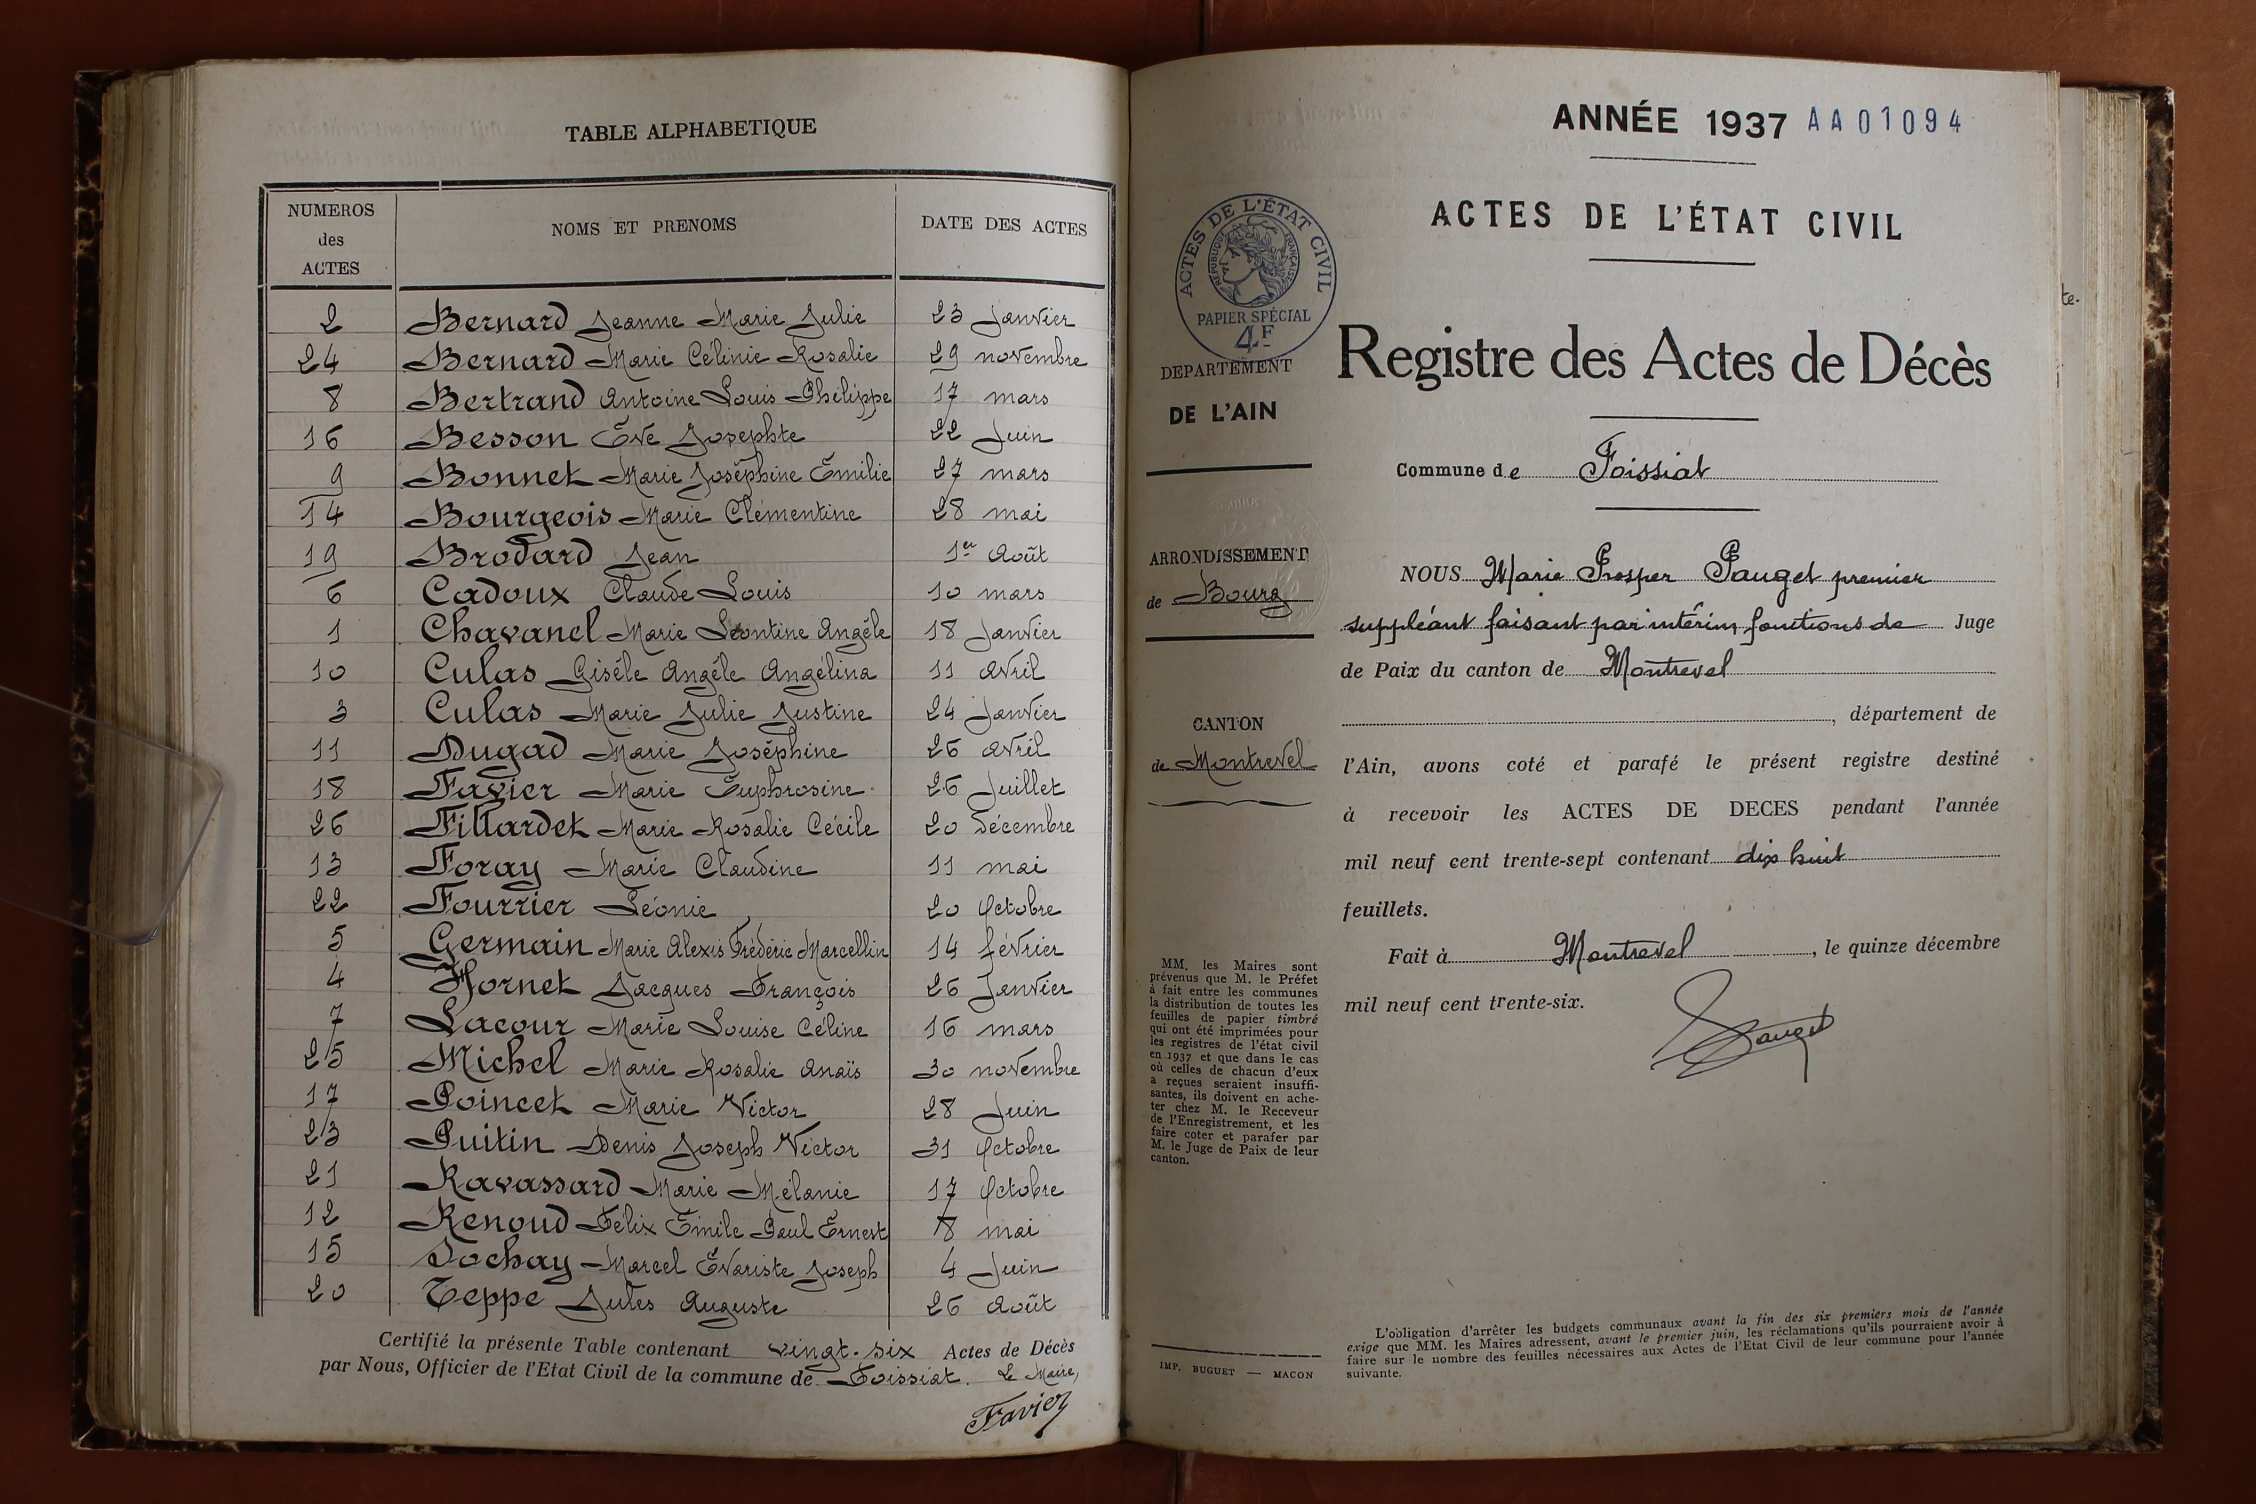 TABLE ALPHABETIQUE
NUMEROS des ACTES NOMS ET PRENOMS DATE DES ACTES
2 Bernard Jeanne Marie Julie 23 Janvier
24 Bernard Marie Célinie Rosalie 29 novembre
8 Bertrand Antoine Louis Philippe 17 mars
16 Besson Ève Josephte 22 Juin
9 Bonnet Marie Joséphine Emilie 27 mars
14 Bourgeois Marie Clémentine 28 mai
19 Brodard Jean 1er Août
6 Cadoux Claude Louis 10 mars
1 Chavanel Marie Léontine Angèle 18 Janvier
10 Culas Gisèle Angèle Angélina 11 Avril
3 Culas Marie Julie Justine 24 Janvier
11 Dugad Marie Joséphine 26 Avril
18 Favier Marie Euphrosine 26 Juillet
26 Fillardet Marie Rosalie Cécile 20 Décembre
13 Foray Marie Claudine 11 mai
22 Fourrier Léonie 20 Octobre
5 Germain Marie Alexis Frédéric Marcellin 14 février
4 Hornet Jacques François 26 Janvier
7 Lacour Marie Louise Céline 16 mars
25 Michel Marie Rosalie Anaïs 30 novembre
17 Poincet Marie Victor 28 Juin
23 Puitin Denis Joseph Victor 31 Octobre
21 Ravassard Marie Mélanie 17 Octobre
12 Renoud Félix Emile Paul Ernest 8 mai
15 Sochay Marcel Evariste Joseph 4 Juin
20 Teppe Jules Auguste 26 Août
Certifié la présente Table contenant vingt-six Actes de Décès
par Nous, Officier de l'Etat Civil de la commune de Foissiat. Le Maire,
Favier
ANNÉE 1937 AA01094
ACTES DE L'ÉTAT CIVIL
ACTES DE L'ÉTAT CIVIL
RÉPUBLIQUE FRANÇAISE
PAPIER SPÉCIAL
4F
DEPARTEMENT
DE L'AIN
Registre des Actes de Décès
Commune de Foissiat
ARRONDISSEMENT
de Bourg
CANTON
de Montrevel
NOUS Marie Prosper Pauget premier
suppléant faisant par intérim fonctions de Juge
de Paix du canton de Montrevel
, département de
l'Ain, avons coté et parafé le présent registre destiné
à recevoir les ACTES DE DECES pendant l'année
mil neuf cent trente-sept contenant dix huit
feuillets.
Fait à Montrevel, le quinze décembre
mil neuf cent trente-six.
Pauget
MM. les Maires sont
prévenus que M. le Préfet
a fait entre les communes
la distribution de toutes les
feuilles de papier timbré
qui ont été imprimées pour
les registres de l'état civil
en 1937 et que dans le cas
où celles de chacun d'eux
a reçues seraient insuffi-
santes, ils doivent en ache-
ter chez M. le Receveur
de l'Enregistrement, et les
faire coter et parafer par
M. le Juge de Paix de leur
canton.
IMP. BUGUET — MACON
L'obligation d'arrêter les budgets communaux avant la fin des six premiers mois de l'année
exige que MM. les Maires adressent, avant le premier juin, les réclamations qu'ils pourraient avoir à
faire sur le nombre des feuilles nécessaires aux Actes de l'Etat Civil de leur commune pour l'année
suivante.
te.